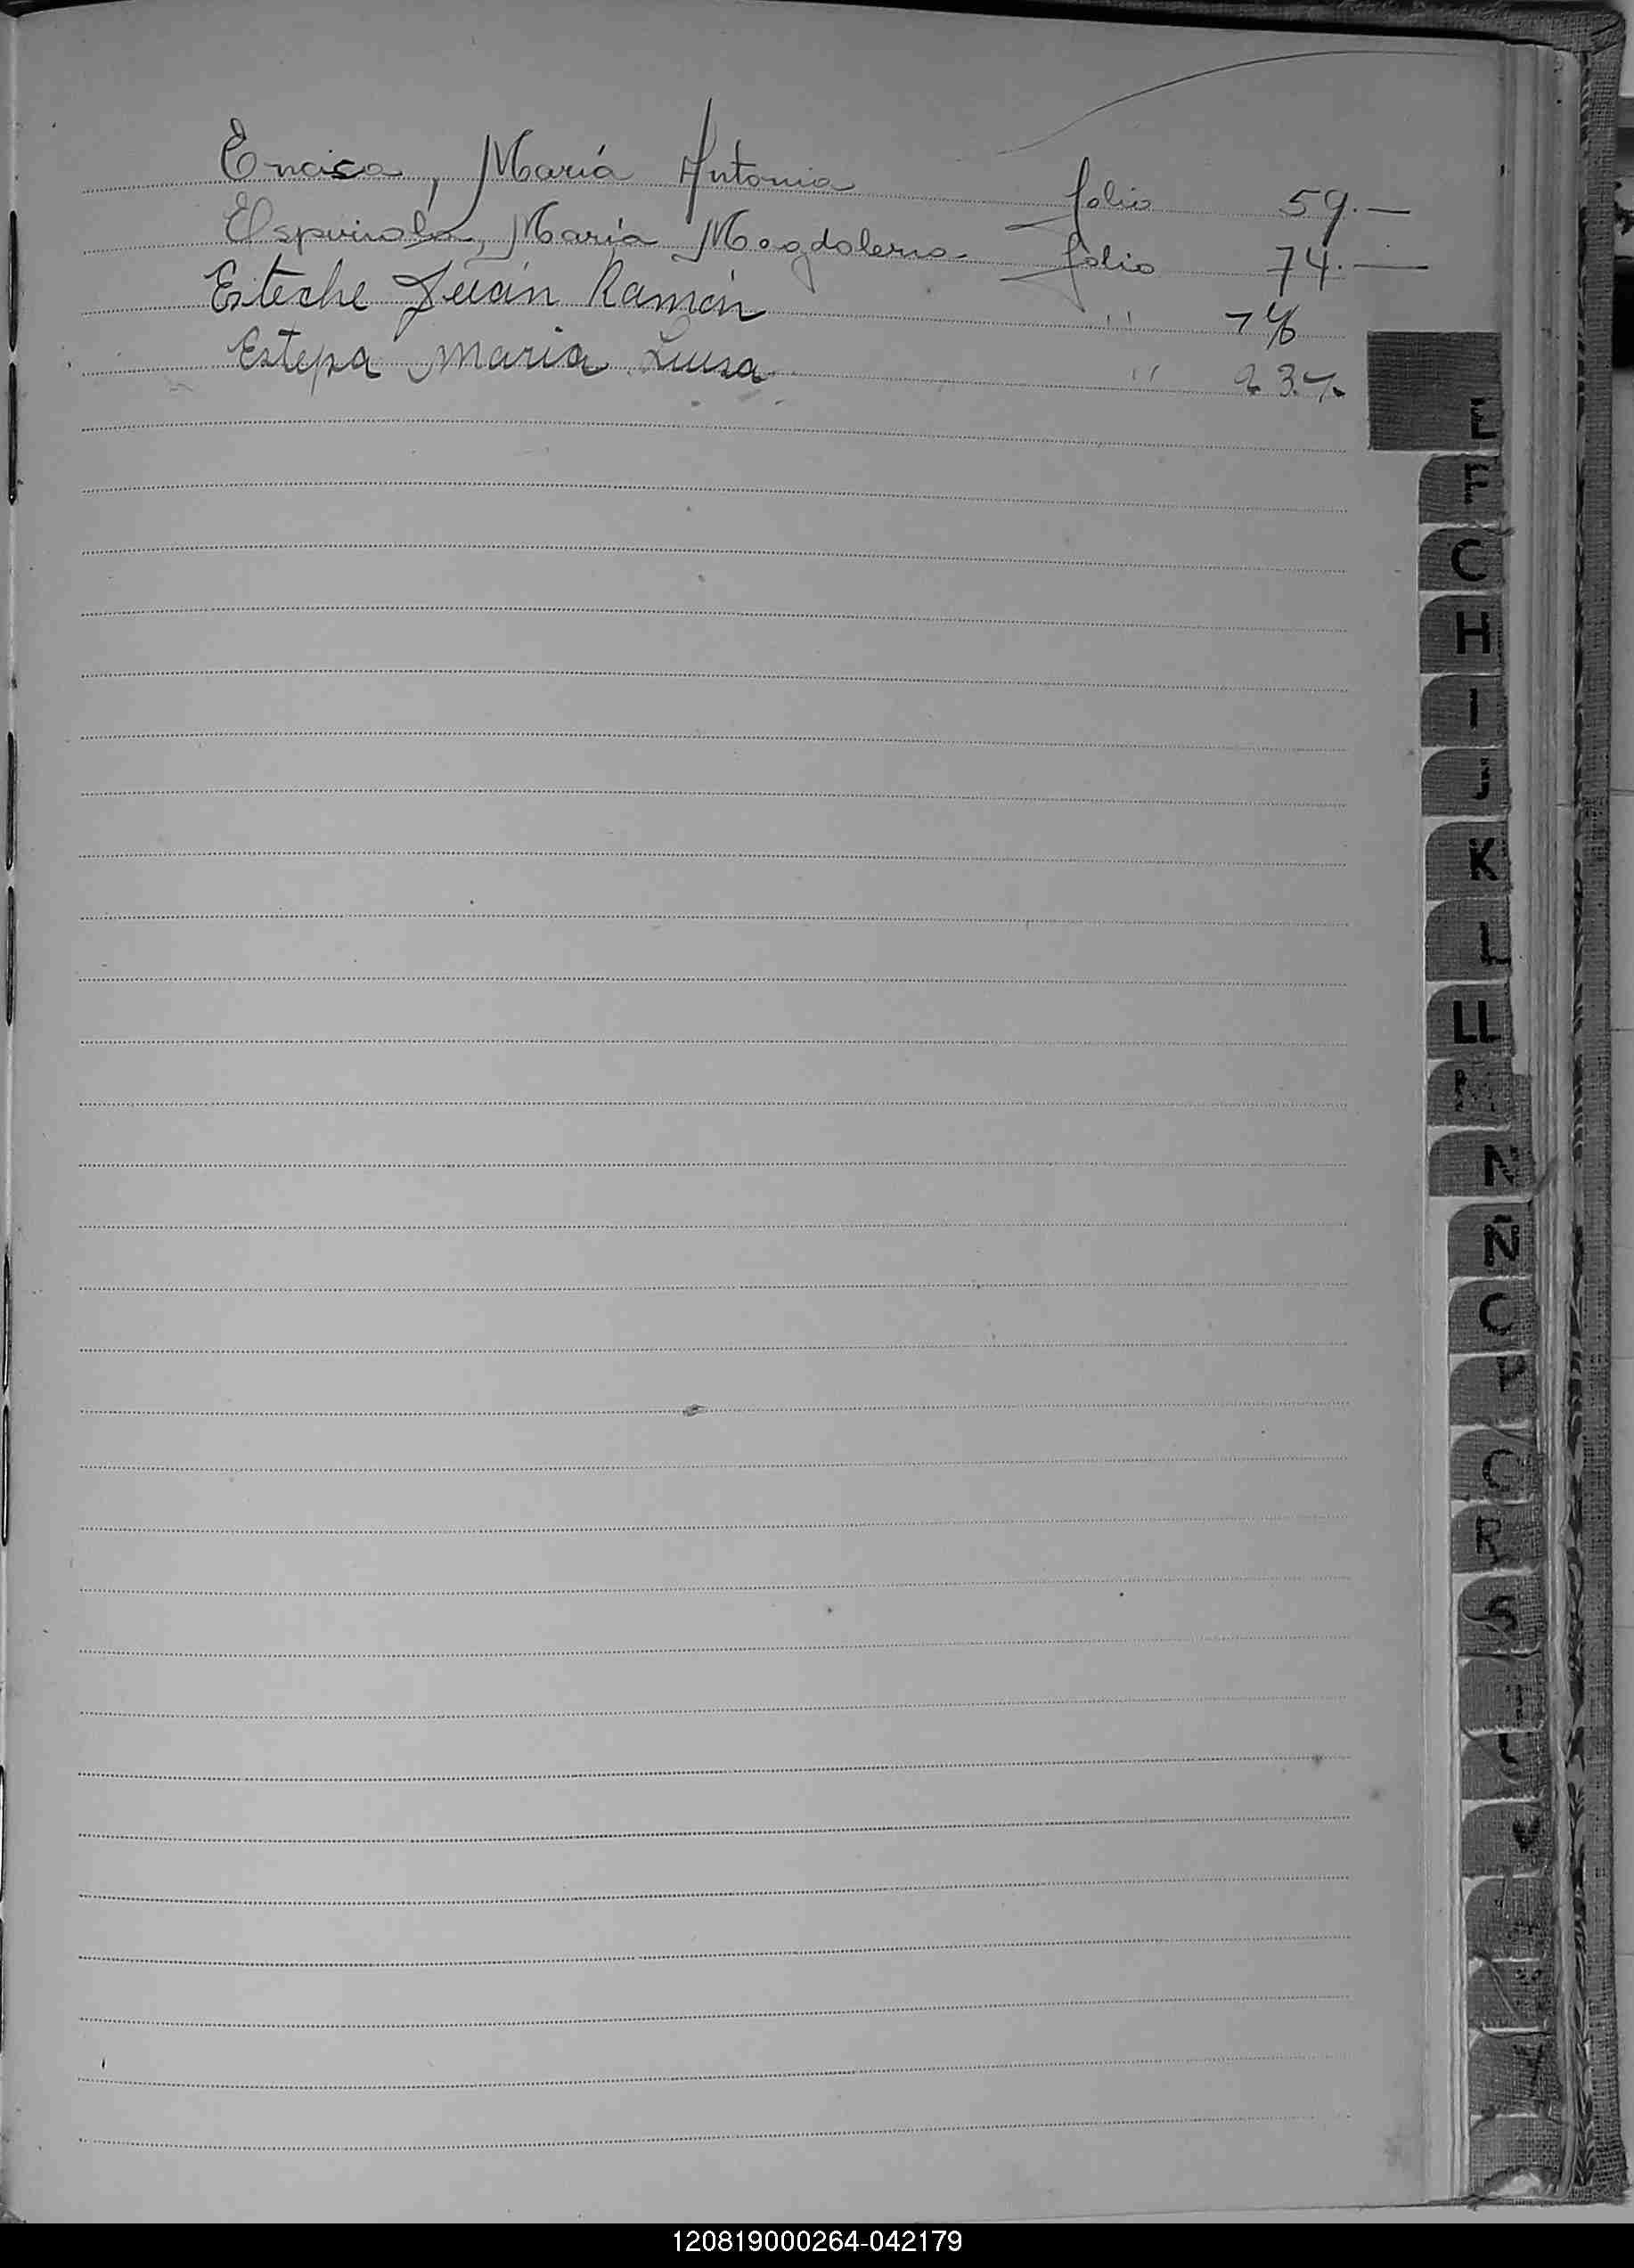 Encisa, María Antonia folio 59.—
Espinola, María Magdalena folio 74.—
Esteche Juan Ramón " 76
Estepa Maria Luisa "
E
F
G
H
I
J
K
L
LL
M
N
Ñ
O
P
Q
R
S
120819000264-042179